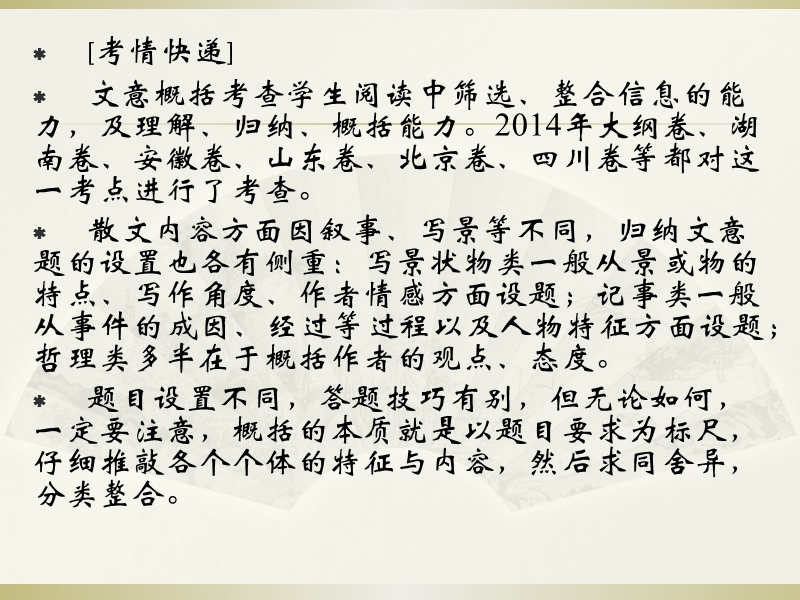 [考情快递]
文意概括考查学生阅读中筛选、整合信息的能
力，及理解、归纳、概括能力。2014年大纲卷、湖
南卷、安徽卷、山东卷、北京卷、四川卷等都对这
一考点进行了考查。
散文内容方面因叙事、写景等不同，归纳文意
题的设置也各有侧重：写景状物类一般从景或物的
特点、写作角度、作者情感方面设题；记事类一般
从事件的成因、经过等过程以及人物特征方面设题；
哲理类多半在于概括作者的观点、态度。
题目设置不同，答题技巧有别，但无论如何，
一定要注意，概括的本质就是以题目要求为标尺，
仔细推敲各个个体的特征与内容，然后求同舍异，
分类整合。